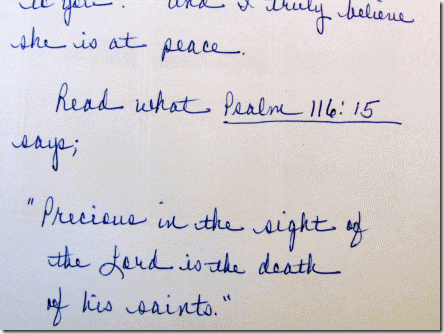 to you. And I truly believe
she is at peace.
Read what Psalm 116:15
says;
"Precious in the sight of
the Lord is the death
of his saints."